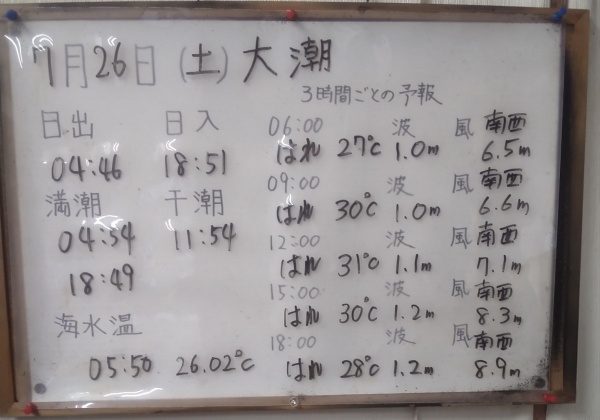 7月26日(土)大潮
3時間ごとの予報
日出 日入
04:46 18:51
満潮 干潮
04:54 11:54
18:49
海水温
05:50 26.02℃
06:00 波 風 南西
はれ 27℃ 1.0m 6.5m
09:00 波 風 南西
はれ 30℃ 1.0m 6.6m
12:00 波 風 南西
はれ 31℃ 1.1m 7.1m
15:00 波 風 南西
はれ 30℃ 1.2m 8.3m
18:00 波 風 南西
はれ 28℃ 1.2m 8.9m